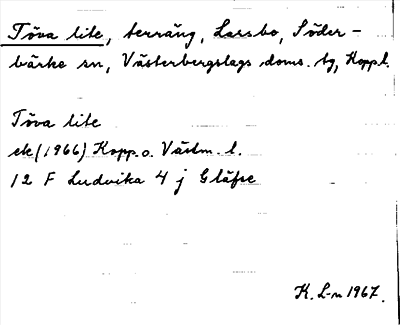 Töva lite, terräng, Larsbo, Söder-
bärke sn, Västerbergslags doms. tg, Kopp.l.
Töva lite
ek (1966) Kopp. o. Västm. l.
12 F Ludvika 4 j Gläfse
K. L-n 1967.